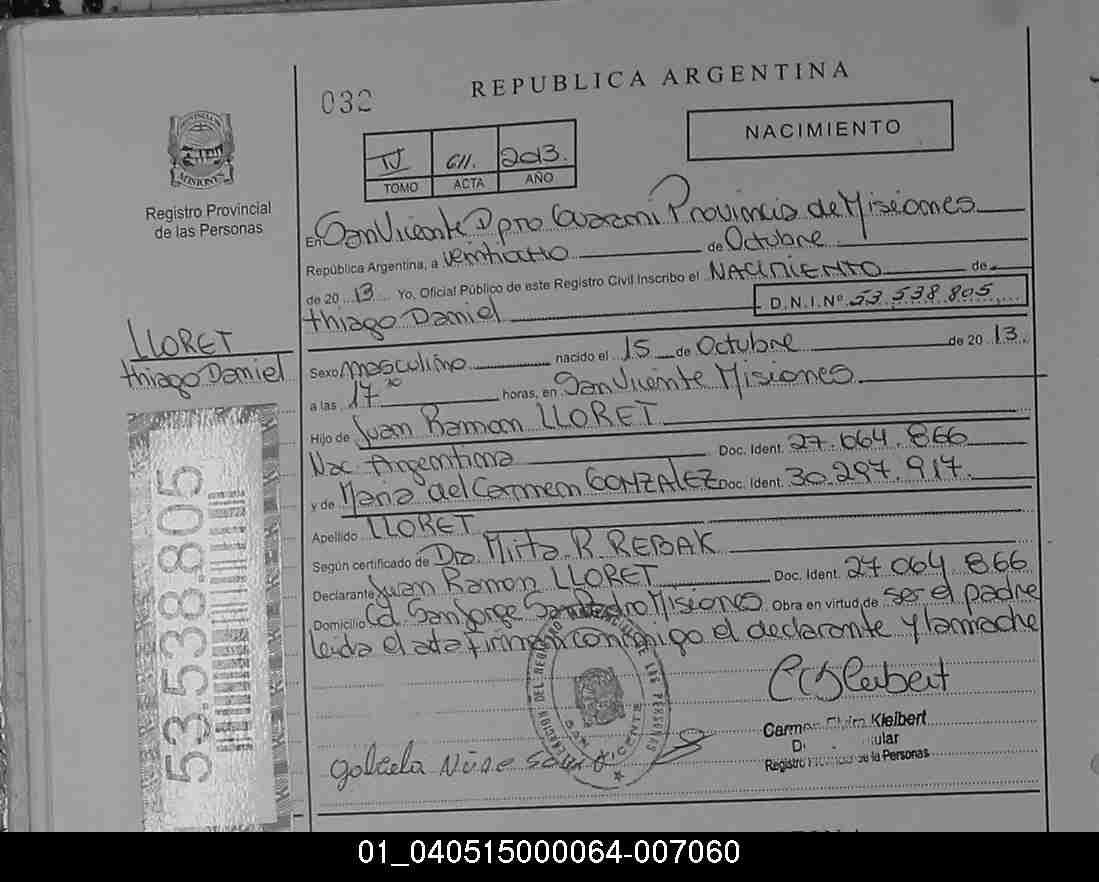 REPUBLICA ARGENTINA
032
NACIMIENTO
IV 611. 2013.
TOMO ACTA AÑO
PROVINCIA DE
MISIONES
Registro Provincial
de las Personas
En San Vicente Dpto Guarani Provincia de Misiones
República Argentina, a veintiocho de Octubre
de 2013 Yo, Oficial Público de este Registro Civil Inscribo el NACIMIENTO de
thiago Daniel D.N.I.Nº 53.538.805
LLORET
thiago Daniel
Sexo masculino nacido el 15 de Octubre de 2013.
a las 17 horas, en San Vicente Misiones
Hijo de Juan Ramon LLORET
Nac. Argentina Doc. Ident. 27.064.866
y de Maria del Carmen GONZALEZ Doc. Ident. 30.297.917.
Apellido LLORET
Según certificado de Dra. Mirta R. REBAK
Declarante Juan Ramon LLORET Doc. Ident. 27.064.866
Domicilio Cd. San Jorge San Pedro Misiones Obra en virtud de ser el padre
leida el acta firman conmigo el declarante y la madre
53.538.805
SAN VICENTE
Kleibert
Registro de la Personas
01_040515000064-007060